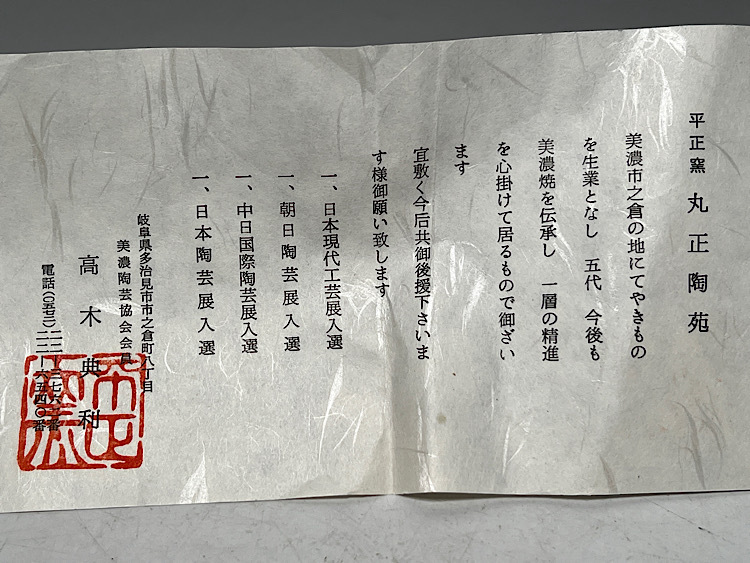 平正窯 丸正陶苑
美濃市之倉の地にてやきもの
を生業となし 五代 今後も
美濃焼を伝承し 一層の精進
を心掛けて居るもので御ざい
ます
宜敷く今后共御後援下さいま
す様御願い致します
一、日本現代工芸展入選
一、朝日陶芸展入選
一、中日国際陶芸展入選
一、日本陶芸展入選
岐阜県多治見市市之倉町八丁目
美濃陶芸協会会員
高木典利
電話(〇五七二)
六五四〇番